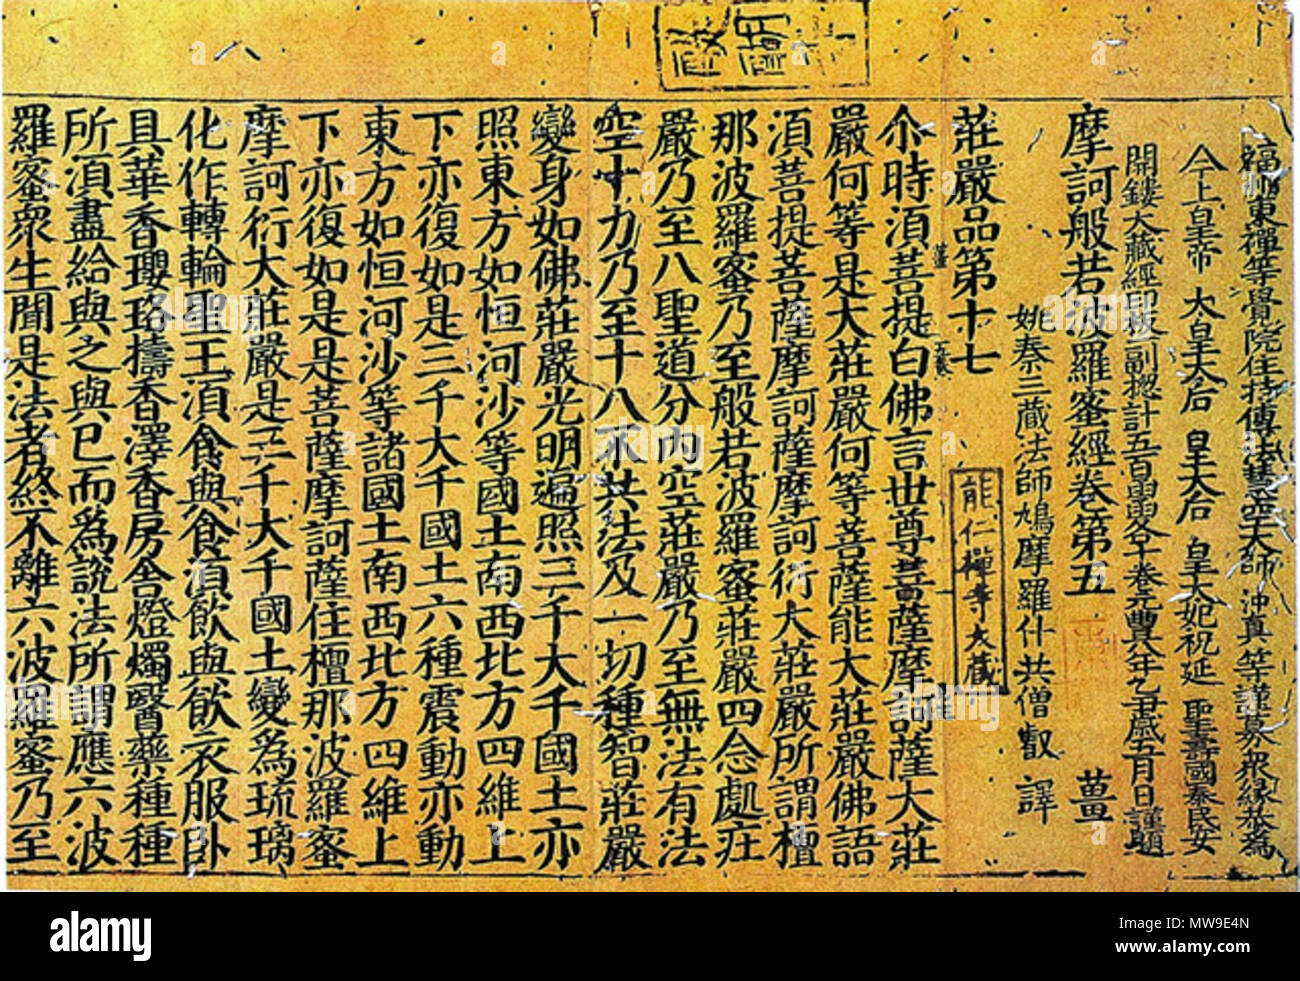 福州東禪等覺院住持傳法慧空大師 沖真等謹募衆緣恭為
今上皇帝 太皇太后 皇太后 皇太妃祝延 聖壽國泰民安
開鏤大藏經印板一副揔計五百函 元豐八年乙丑歲五月日謹題
摩訶般若波羅蜜經卷第五 薑
姚秦三藏法師鳩摩羅什共僧叡 譯
莊嚴品第十七
能仁禪寺大藏
尒時須菩提白佛言世尊菩薩摩訶薩大莊
嚴何等是大莊嚴何等菩薩能大莊嚴佛語
須菩提菩薩摩訶薩摩訶衍大莊嚴所謂檀
那波羅蜜乃至般若波羅蜜莊嚴四念處莊
嚴乃至八聖道分內空莊嚴乃至無法有法
空十力乃至十八不共法及一切種智莊嚴
變身如佛莊嚴光明遍照三千大千國土亦
照東方如恒河沙等國土南西北方四維上
下亦復如是三千大千國土六種震動亦動
東方如恒河沙等諸國土南西北方四維上
下亦復如是是菩薩摩訶薩住檀那波羅蜜
摩訶衍大莊嚴是三千大千國土變為琉璃
化作轉輪聖王須食與食須飲與飲衣服卧
具華香瓔珞擣香澤香房舍燈燭醫藥種種
所須盡給與之與已而為說法所謂應六波
羅蜜衆生聞是法者終不離六波羅蜜乃至
alamy
Image ID: MW9E4N
www.alamy.com